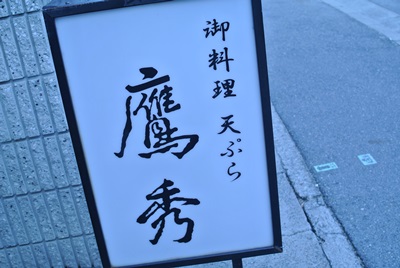 御料理 天ぷら
鷹秀